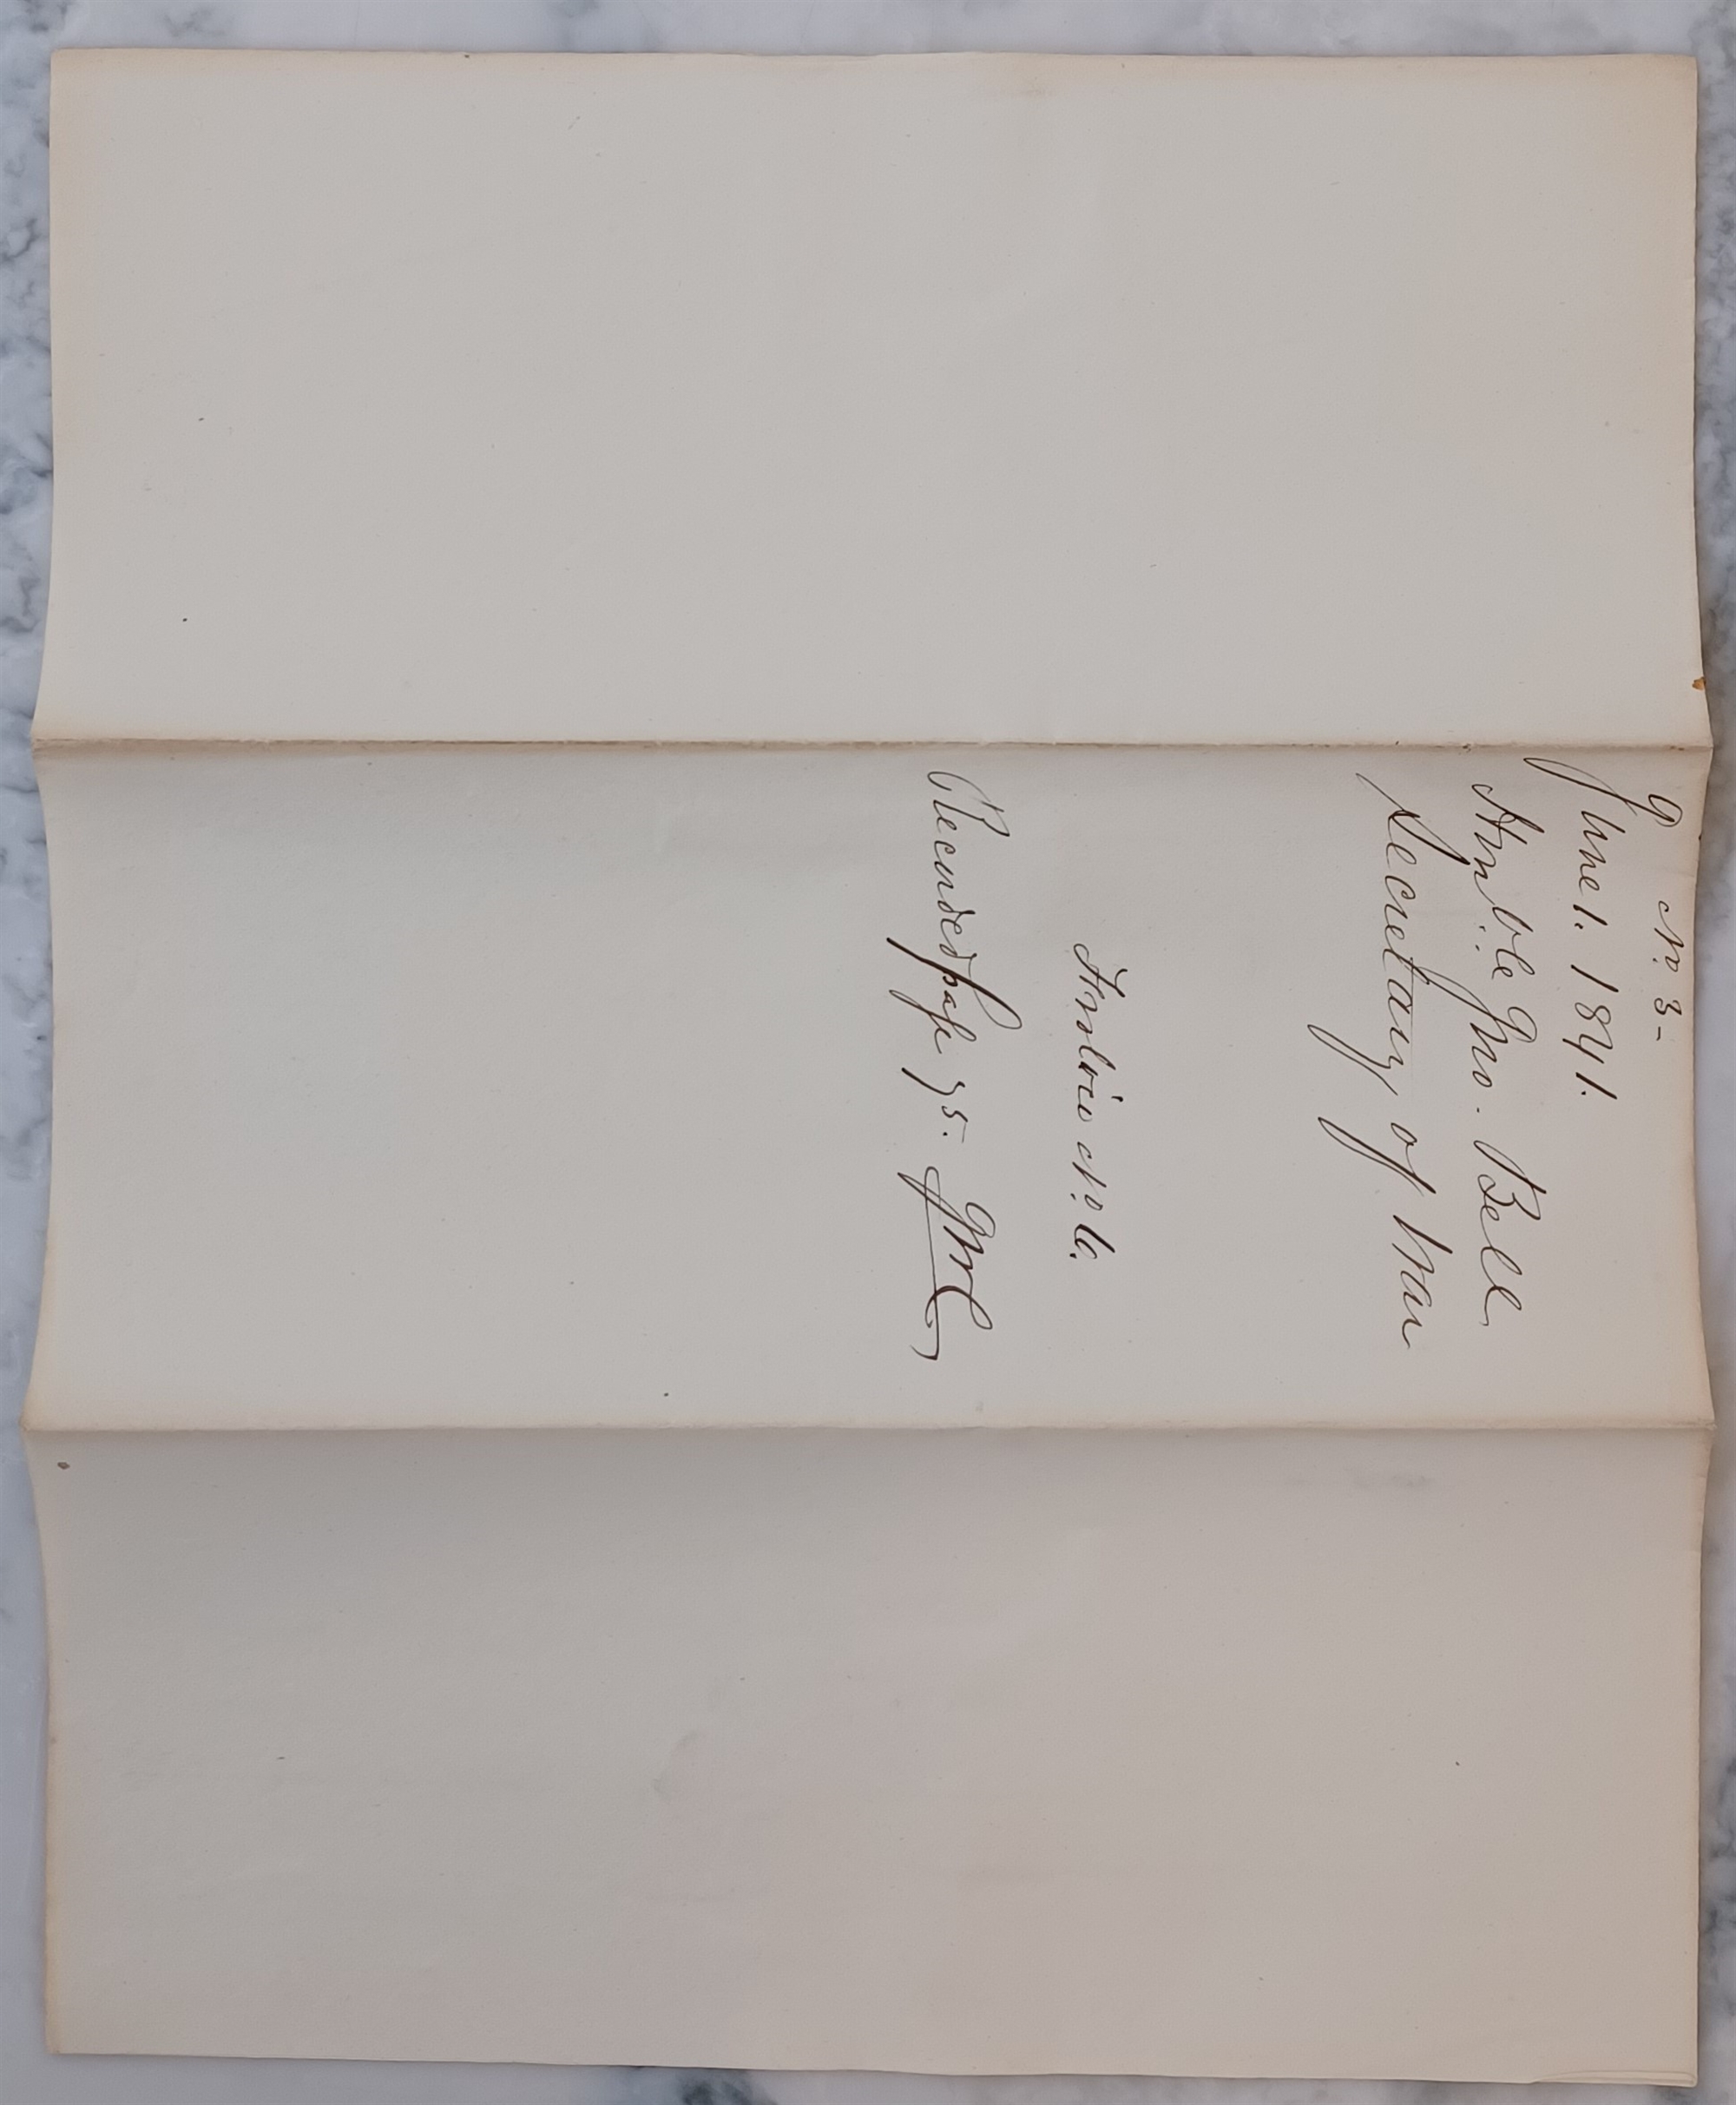 No. 3-
June 1. 1841.
Hon:ble Jno. Bell
Secretary of War
No. 6.
Recorded page 75.